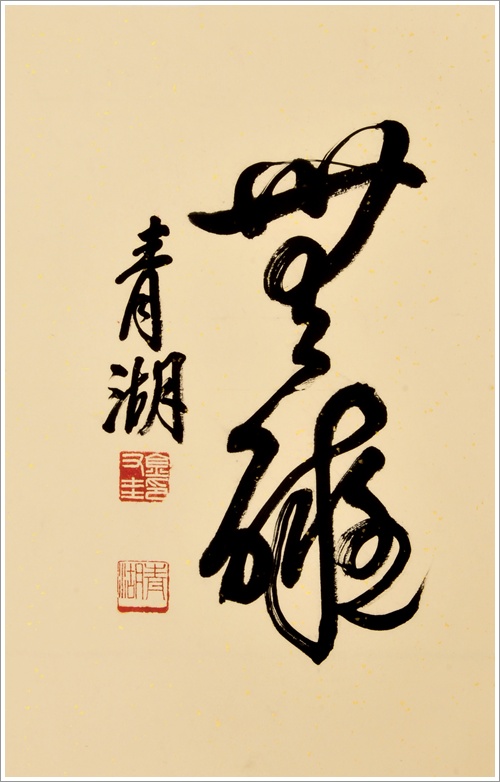 無礙
青湖
青湖